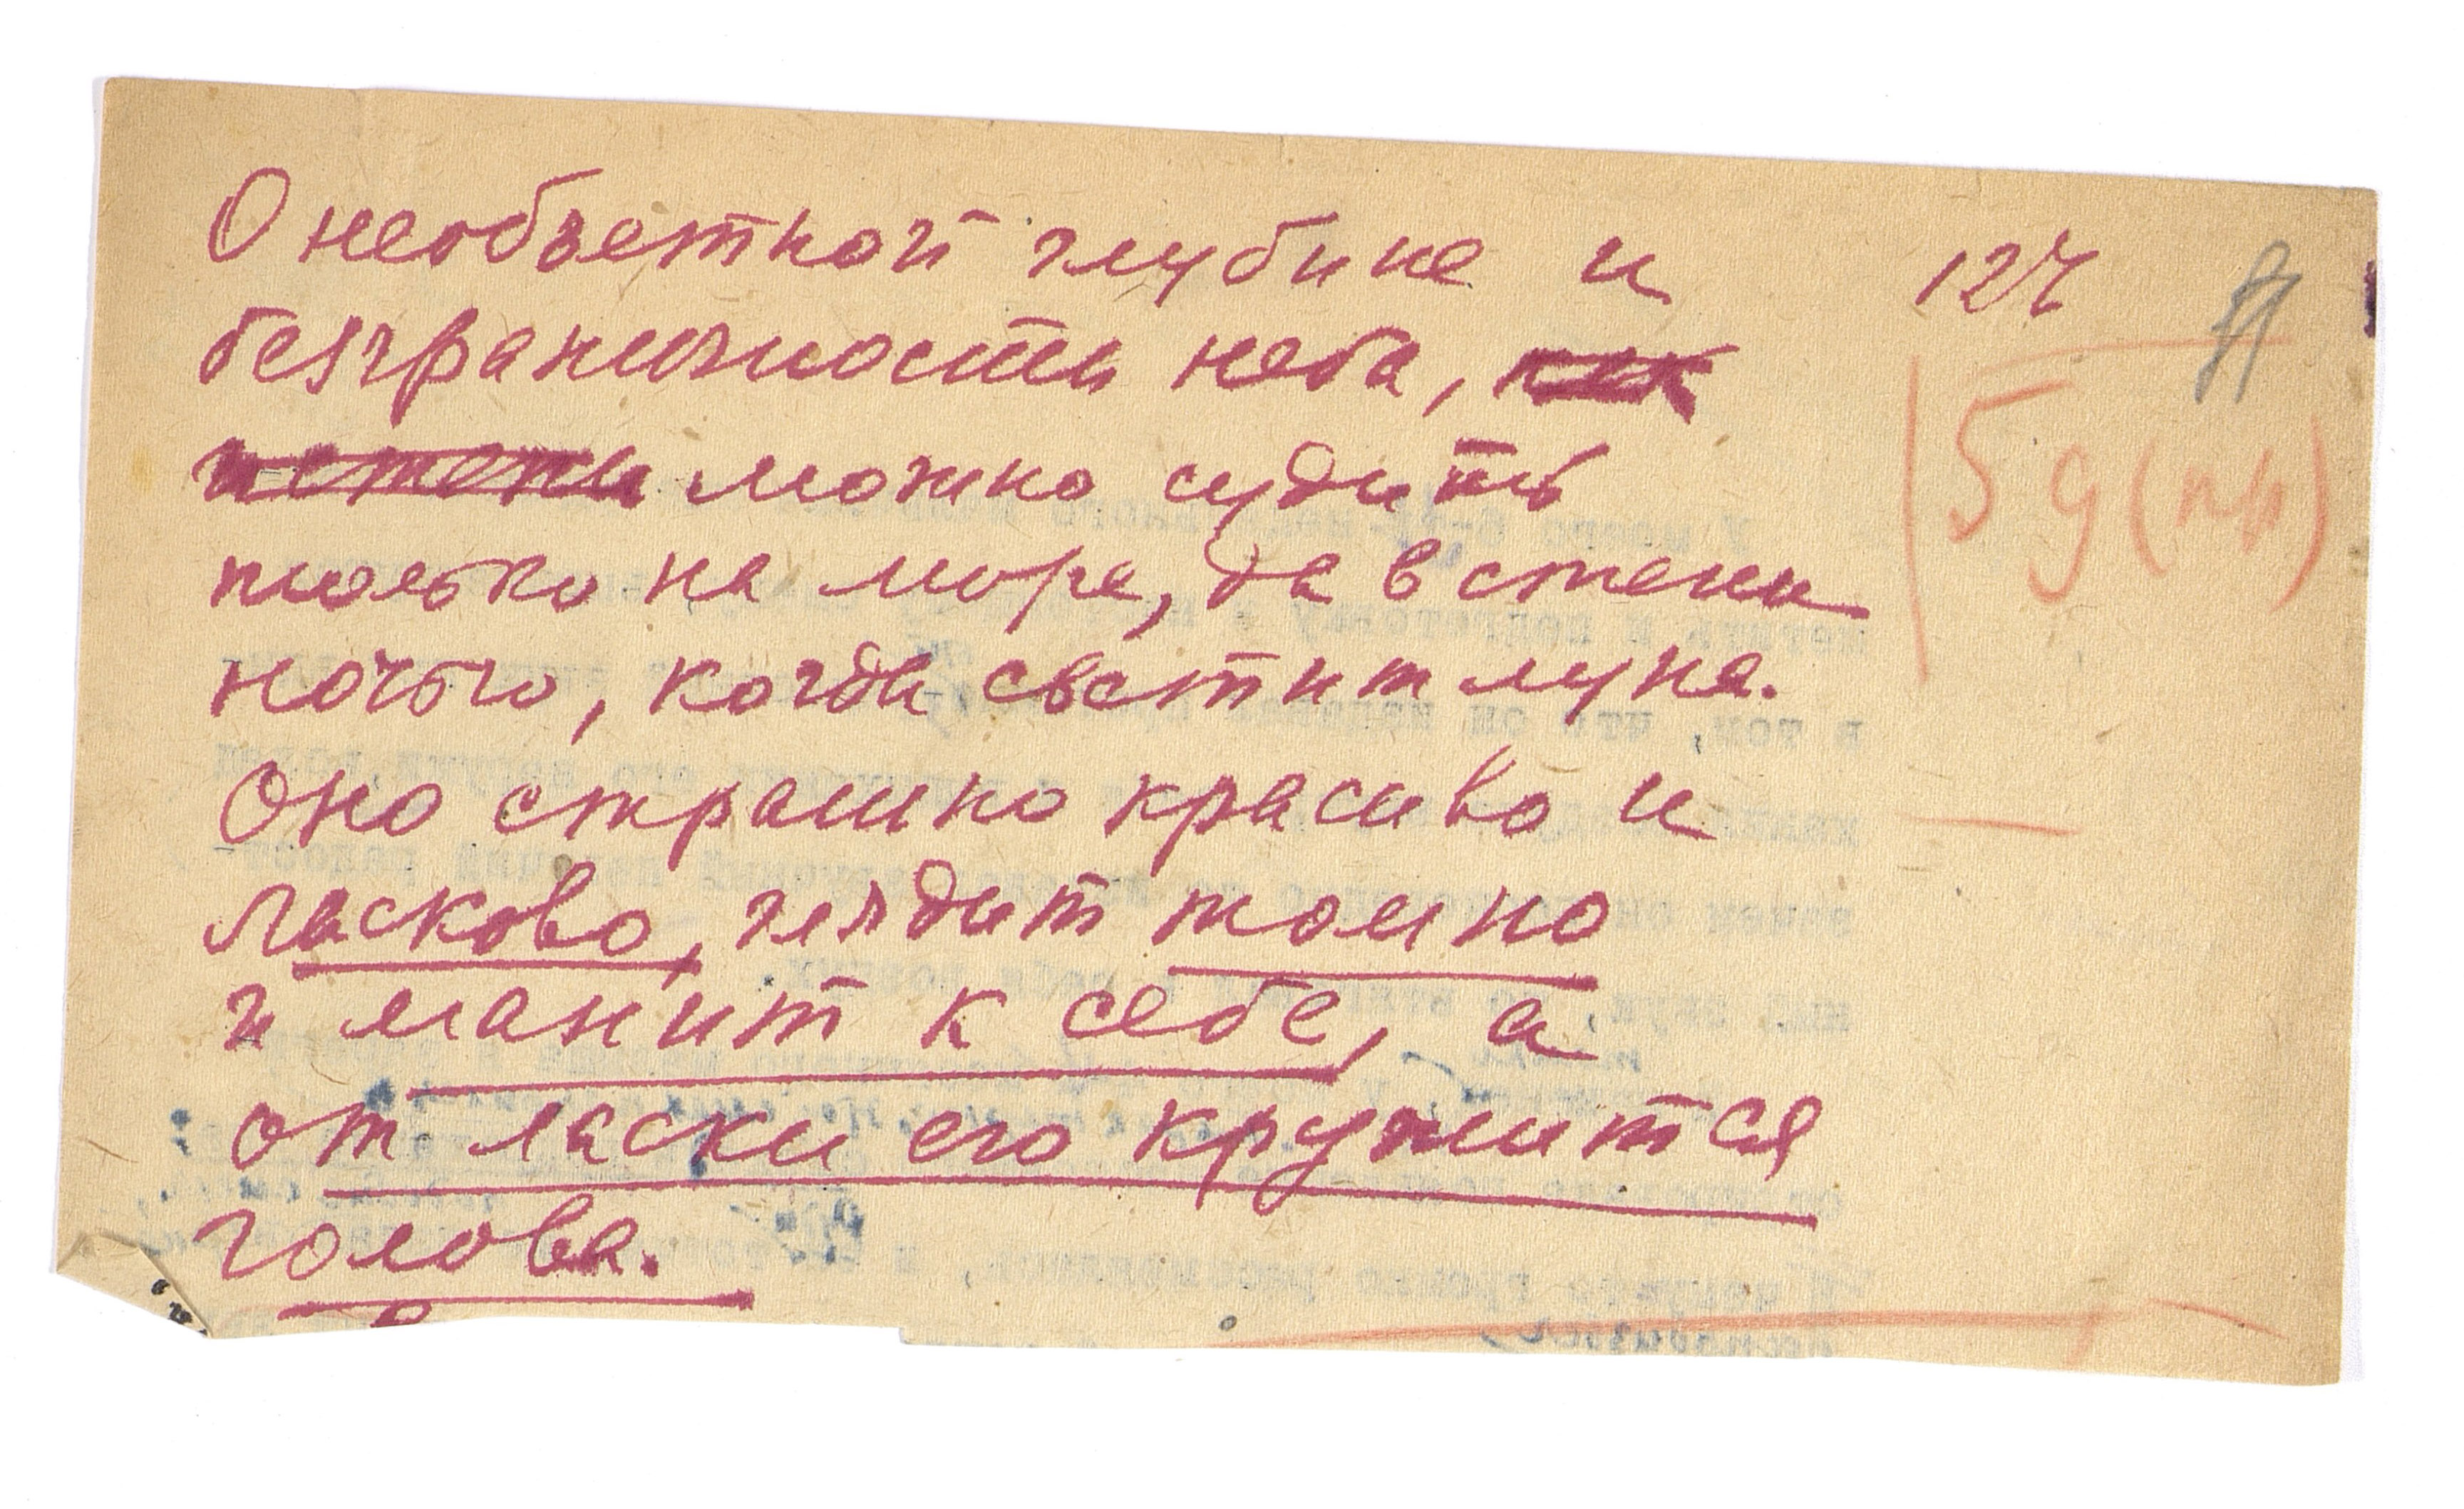 О необъетной глубине и
безграничности неба,
можно судить
только на море, да в степи
ночью, когда светит луна.
Оно страшно красиво и
ласково, глядит томно
и манит к себе, а
от ласки его кружится
голова.
127
5 д (пр)